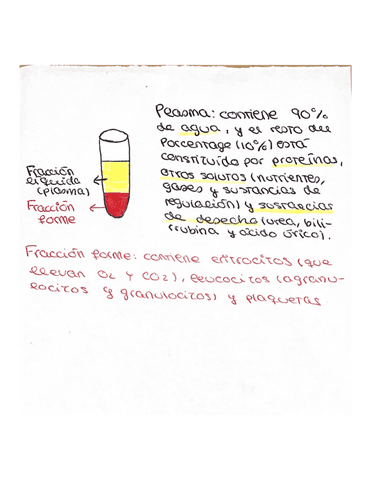 Plasma: contiene 90%
de agua, y el resto del
porcentage (10%) está
constituido por proteínas,
otros solutos (nutrientes,
gases y sustancias de
regulación) y sustancias
de desecho (urea, bili-
rrubina y ácido úrico).
Fracción
líquida
(plasma)
Fracción
forme
Fracción forme: contiene eritrocitos (que
llevan O2 y CO2), leucocitos (agranu-
locitos y granulocitos) y plaquetas